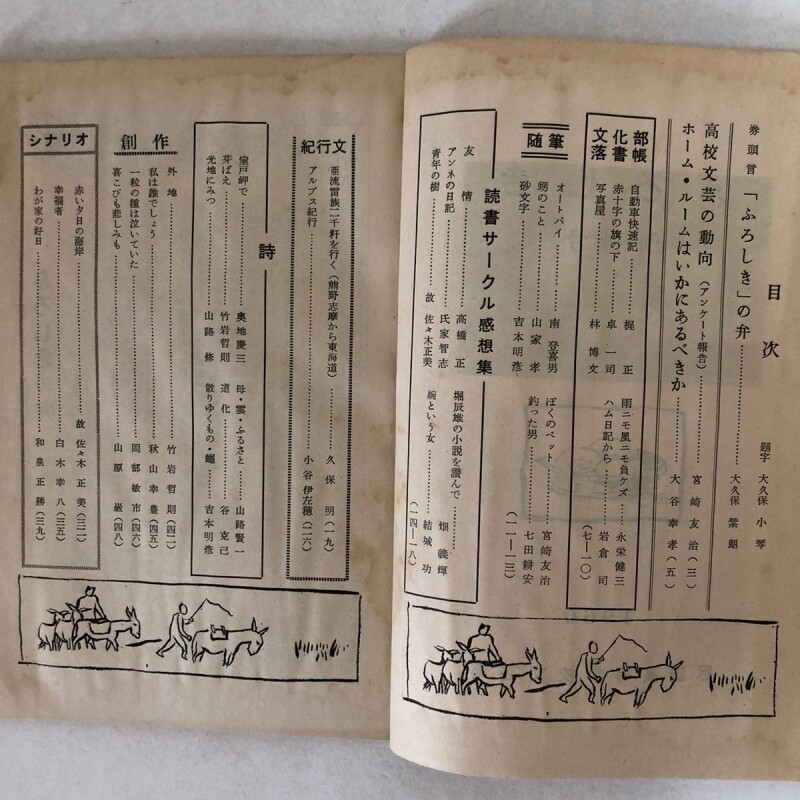 目次
題字 大久保小琴
巻頭言 「ふろしき」の弁………大久保紫朗
高校文芸の動向（アンケート報告）………宮崎友治（三）
ホーム・ルームはいかにあるべきか………大谷幸孝（五）
部落文化書帳
自動車快速記………梶正
赤十字の旗の下………卓一司
写真屋………林博文
雨ニモ風ニモ負ケズ………永栄健三
ハム日記から………岩倉司
（七—一〇）
随筆
オートバイ………南登喜男
甥のこと………山家孝
砂文字………吉本明彦
ぼくのペット………宮崎友治
釣った男………七田耕安
（一一—一三）
読書サークル感想集
友情………高橋正
アンネの日記………氏家智志
青年の樹………故 佐々木正美
堀辰雄の小説を讀んで………畑義輝
婉という女………結城功
（一四—一八）
紀行文
亜流雷族二千粁を行く（熊野志摩から東海道）………久保明（一九）
アルプス紀行………小谷伊左穂（二六）
詩
室戸岬で………奥地慶三
芽ばえ………竹岩哲則
光地にみつ………山路修
母・雲・ふるさと………山路賢一
道化………谷克己
散りゆくもの・蠅………吉本明彦
創作
外地………竹岩哲則（四二）
私は誰でしょう………秋山幸豊（四五）
一粒の種は泣いていた………岡部敏市（四六）
喜こびも悲しみも………山原巌（四八）
シナリオ
赤い夕日の海岸………故 佐々木正美（三二）
幸福者………白木幸八（三五）
わが家の好日………和泉正勝（三九）